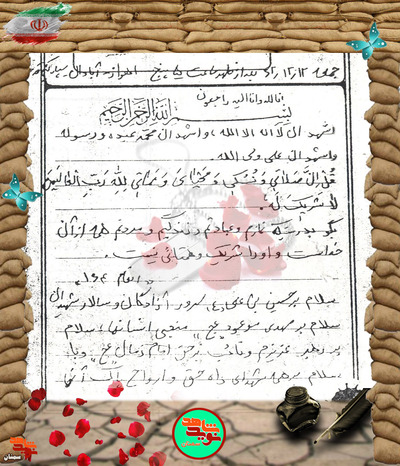 جمعه ۱۲/۱۲/ بعد از ظهر ساعت پنج اهواز
انا لله وانا الیه راجعون
بسم الله الرحمن الرحیم
اشهد ان لا اله الا الله، واشهد ان محمد عبده و رسوله
واشهد ان علی ولی الله
قل ان صلاتی و نسکی و محیای و مماتی لله رب العالمین
لا شریک له
بگو بدرستیکه نمازم و عبادتم و زندگیم و مردنم همه از آن
خداست و او را شریک و همتائی نیست.
انعام ۱۶۲
سلام بر حسین بن علی (ع) سرور آزادگان و سالار شهیدان
سلام بر مهدی موعود عج منجی انسانها، سلام
بر رهبر عزیزم و نائب برحق امام زمان عج
سلام بر همه شهدای راه حق و ارواح پاک
نوید شاهد
سمنان
نوید شاهد
سمنان